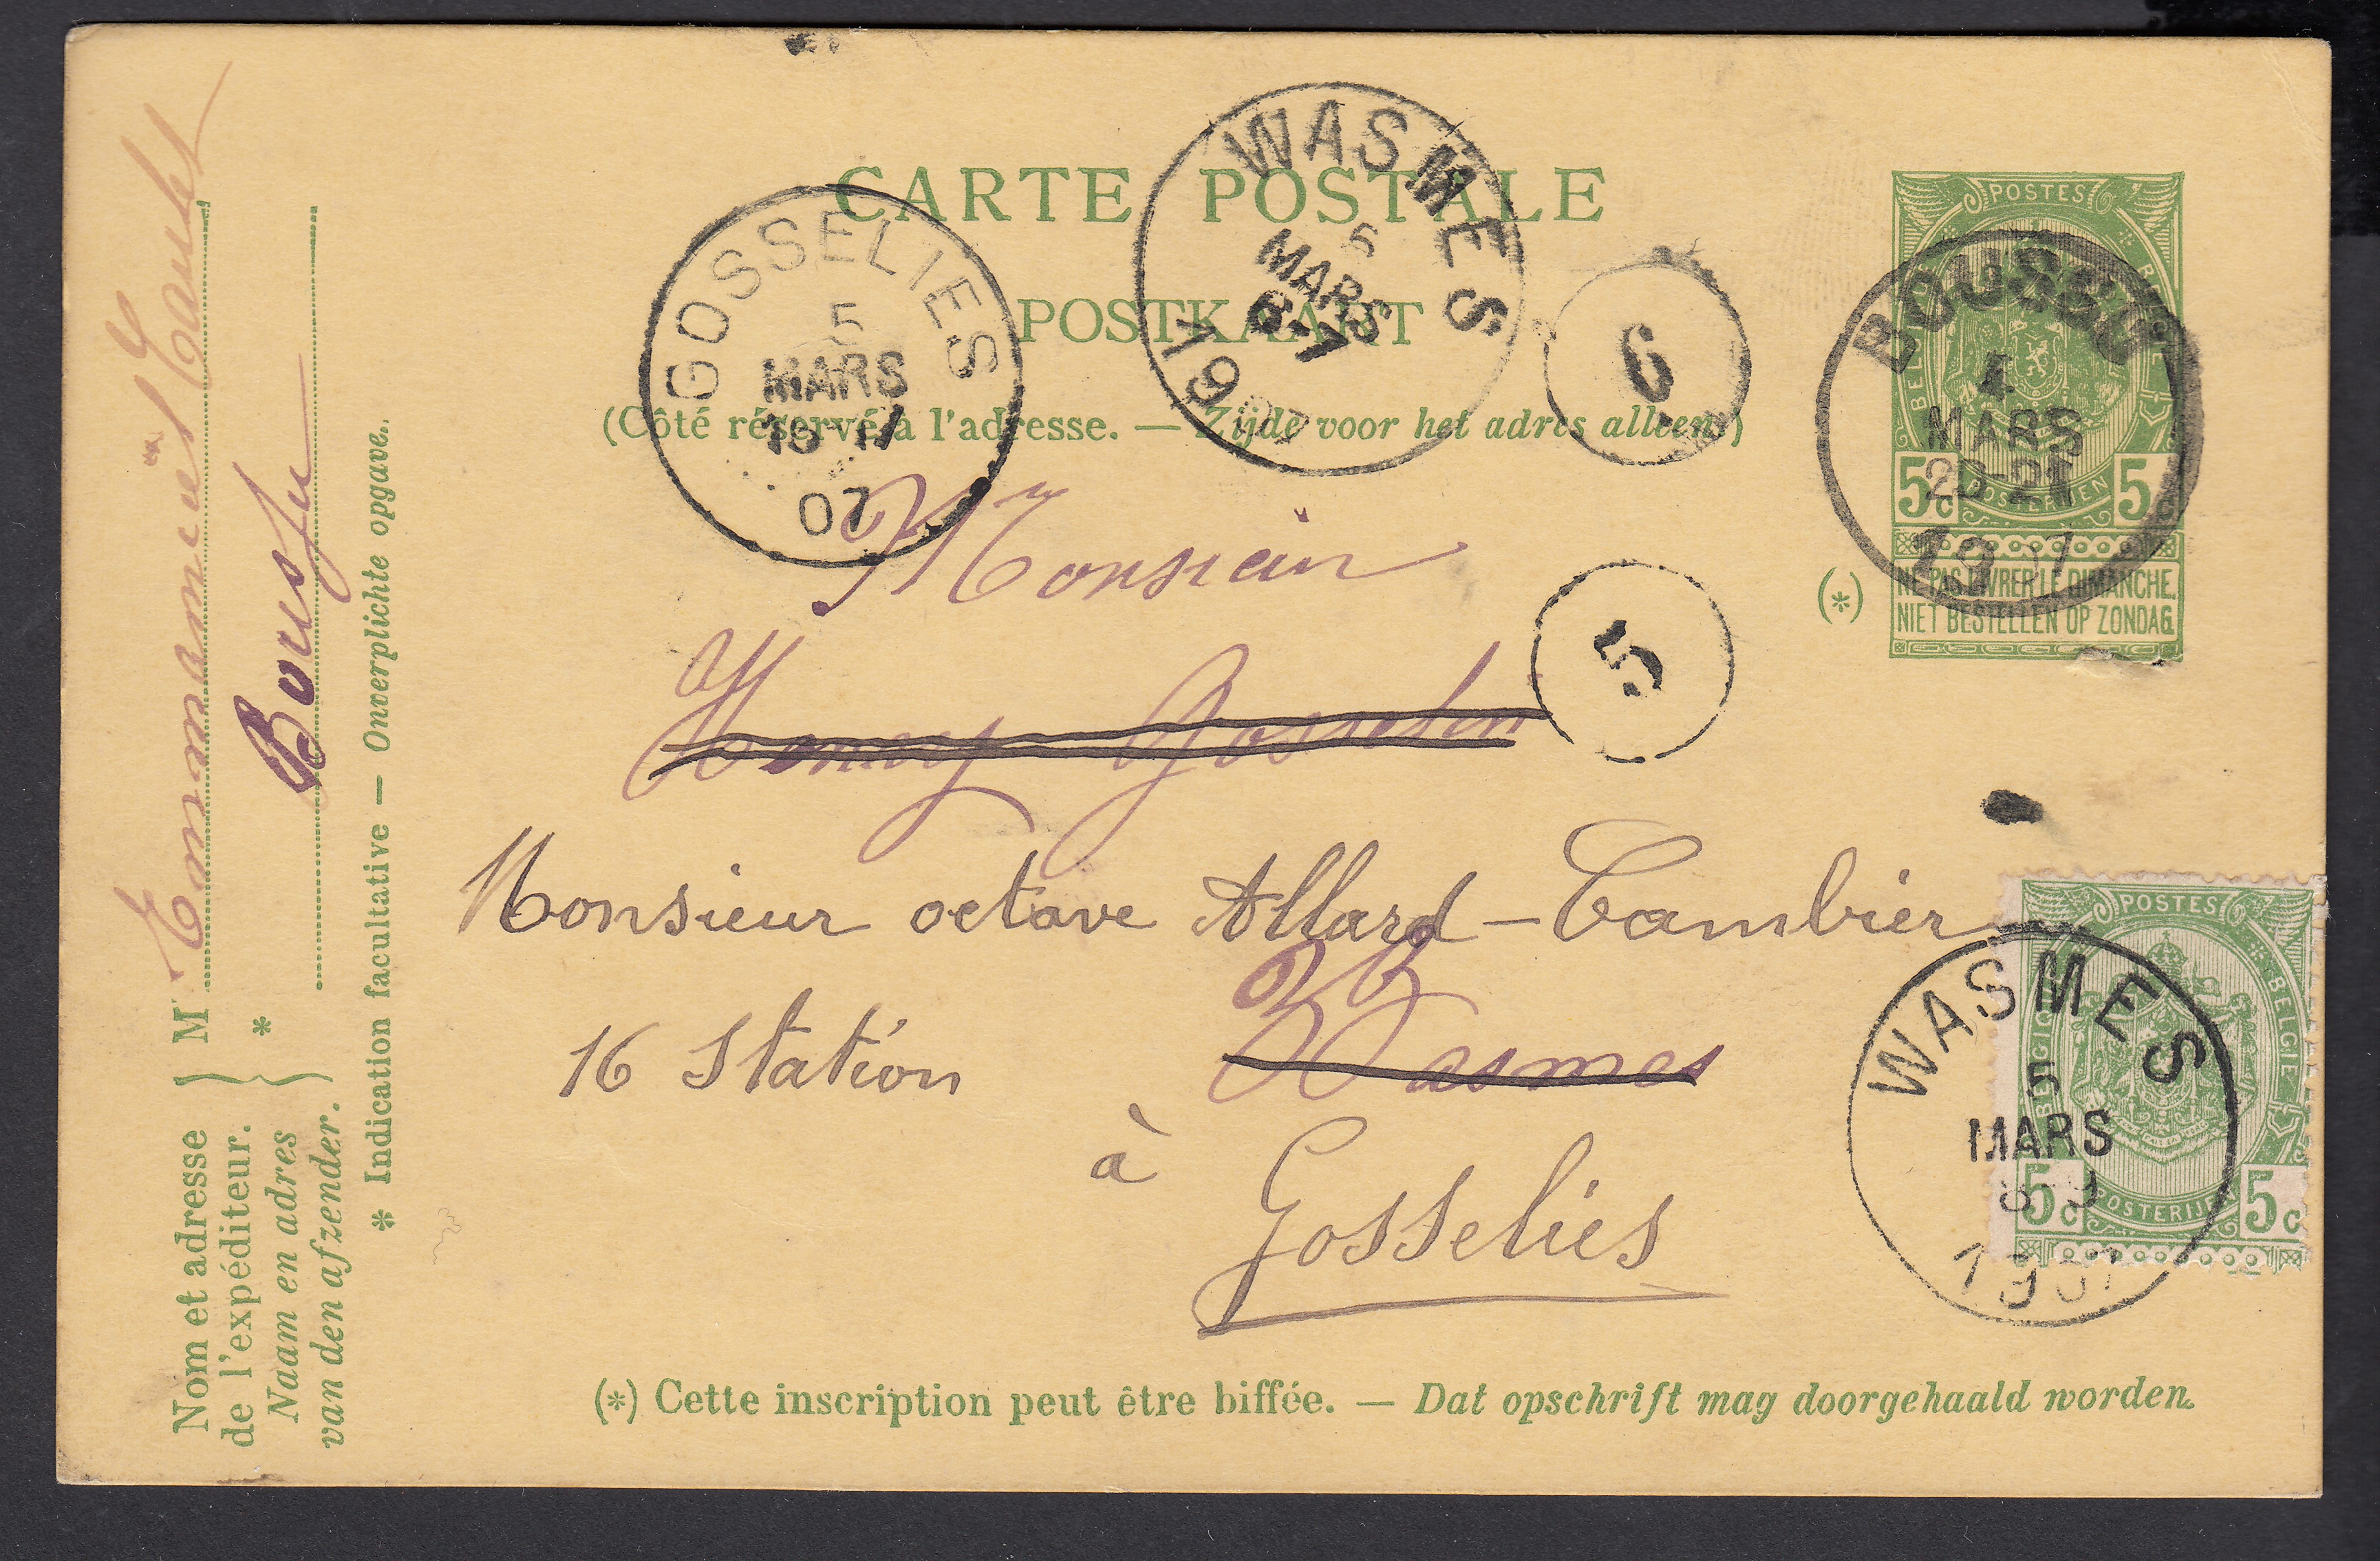 CARTE POSTALE
POSTKAART
(Côté réservé à l'adresse. — Zijde voor het adres alleen.)
GOSSELIES
5
MARS
07
WASMES
5
MARS
6-7
1907
6
5
POSTES
BELGIQUE BELGIË
5c POSTERIJEN 5c
NE PAS LIVRER LE DIMANCHE.
NIET BESTELLEN OP ZONDAG.
(*)
BOUSSU
4
MARS
20-21
1907
Monsieur
Gosselin
Monsieur octave Allard-Cambier
Wasmes
16 Station
à
Gosselies
POSTES
BELGIQUE BELGIË
5c POSTERIJEN 5c
WASMES
5
MARS
8-9
1907
(*) Cette inscription peut être biffée. — Dat opschrift mag doorgehaald worden.
Nom et adresse
de l'expéditeur.
Naam en adres
van den afzender.
M
Emmanuel
* Boussu
* Indication facultative — Onverplichte opgave.